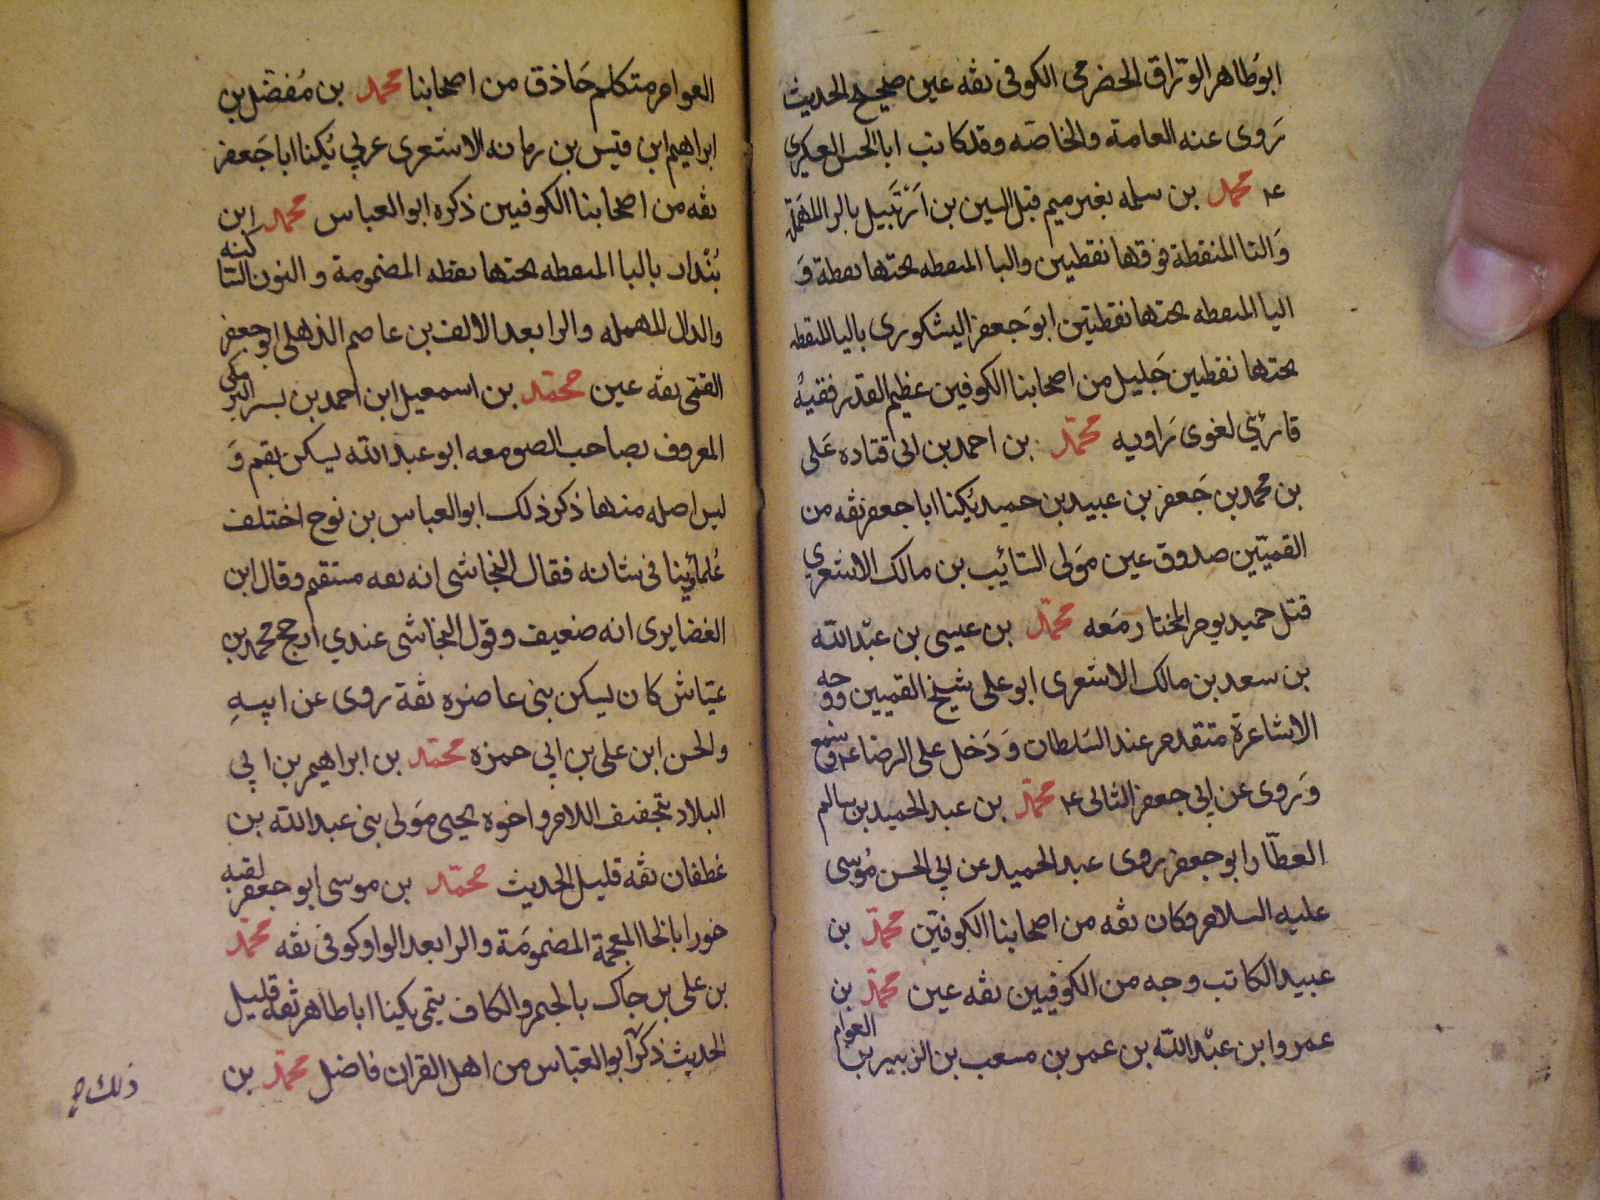 ابوطاهر الورّاق الحضرمى الكوفى ثقه عين صحيح الحديث
رَوى عنه العامة والخاصّه وقد كاتب ابا الحسن العسكرى
ع محمد بن سلمه بغير ميم قبل السين بن اَرْتَبيل بالرا المهملة
وَالتا المنقطة فوقها نقطيين والبا المنقطه تحتها نقطة وَ
اليا المنقطه تحتها نقطتين ابوَجعفر اليشكورى باليا المنقطه
تحتها نقطين جَليل من اصحابنا الكوفين عظيم القدر فقيهُ
قارئ لغوى رَاويه محمّد بن احمد بن ابى قتاده عَلى
بن محمد بن جَعفر بن عبيد بن حميد يُكنا اباجعفر ثقه من
القميّين صدوق عين مَولى السَائِب بن مالك الاشعري
قتل حميد يوم المختار مَعه محمّد بن عيسى بن عبْدالله
بن سعد بن مالك الاشعرى ابوعلى شيخ القميين ووجه
الاشاعرة متقدم عند السَلطان وَدَخل على الرضا ع وسمع
وَروى عن ابى جعفر الثانى ع محمّد بن عبد الحميد بن سالم
العطّار ابوجعفر روى عبد الحميد عن ابى الحسن مُوسى
عليه السلام وكان ثقه من اصحابنا الكوفيّن محمّد بن
عبيد الكاتب وجه من الكوفيين ثقه عين محمّد بن
عمرو ابن عبْدالله بن عمر بن مسعب بن الزبير بن العوام
العوام متكلم حَاذق من اصحابنا محمد بن مُفضل بن
ابراهيم ابن قيس بن رمانه الاشعرى عربي يُكنا اباجَعفر
ثقه من اصحابنا الكوفيين ذكره ابو العباس محمد ابن
بُنْدار بالبا المنقطه تحتها نقطه المضمومة والنون الساكنه
والدال المهمله والرا بعد الالف بن عاصم الذهلى ابوجعفر
القمى ثقه عين محمّد بن اسمعيل ابن احمد بن بسر البرمكى
المعروف بصاحب الصومعه ابوعبدالله يسكن بقم وَ
ليس اصله منها ذكر ذلك ابوالعباس بن نوح اختلف
عُلمائنا فى شانه فقال النجاشى انه ثقه مستقيم وقال ابن
الغضايرى انه ضعيف وقول النجاشى عندي ارجح محمد بن
عيّاش كان يسكن بنى عاضره ثقة روى عن ابيهِ
والحسن ابن على بن ابي حمزه محمّد بن ابراهيم بن ابي
البلاد بتخفيف اللام واخوه يحيى مَولى بنى عبدالله بن
غطفان ثقه قليل الحديث محمّد بن موسى ابوجعفر لقبه
خورا بالخا المعجمة المضمومَة والرا بعد الواو كوفى ثقه محمّد
بن على بن جاك بالجيم والكاف يتمى يكينا اباطاهر ثقه قليل
الحديث ذكرَ ابوالعبّاس من اهل القران فاضل محمّد بن
ذلك ح